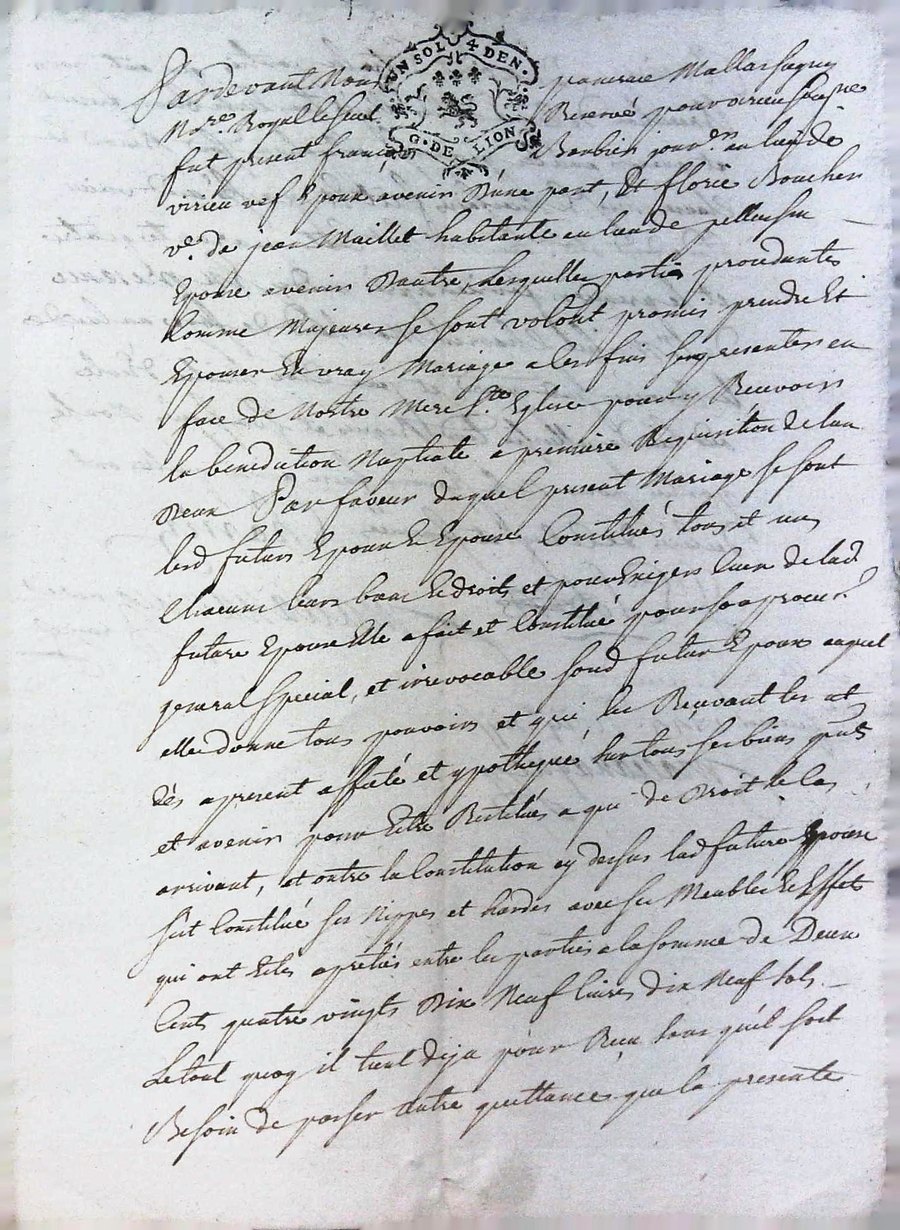 UN SOL 4 DEN.
G. DE LION
Pardevant Nous pancrace Mallassagny
No.re Royal le seul Rezervé pour virieu
fut present francois Barbier jour.r au lieu de
virieu vef Epoux avenir D'une part, Et florie Boucher
v.e de jean Maillet habitante au lieu de pellussin
Epouse avenir D'autre, Lesquelles parties procedantes
Comme Majeures se sont volont. promis prendre Et
Epouser En vray Mariage a les fins se presenter en
face de Nostre Mere S.te Eglise pour y Recevoir
la benediction Nuptiale a premiere Requisition de l'un
Deux Par faveur duquel present Mariage se sont
lesd futurs Epoux & Epouse Constitués tous et uns
Chacuns leurs biens & droits et pour Exiger ceux de lad
future Epouse Elle a fait et Constitué pour son procur.
general special, et irrevocable sond futur Epoux auquel
elle donne tous pouvoirs et qui les Reçevant les at
dès apresent affecté et ypothequé sur tous ses biens pnts
et avenir pour Estre Restitués a qui de Droit le cas
arrivant, et outre la Constitution cy dessus lad future Epouse
sest Constitué ses Nippes et hardes avec ses Meubles & Effets
qui ont Estes apretiés entre les parties a la somme de Deux
Cents quatre vingts Dix Neuf livres dix Neuf sols
Le tout quoy il tient deja pour Reçu sans qu'il soit
Besoin de passer autre quittance que la presente